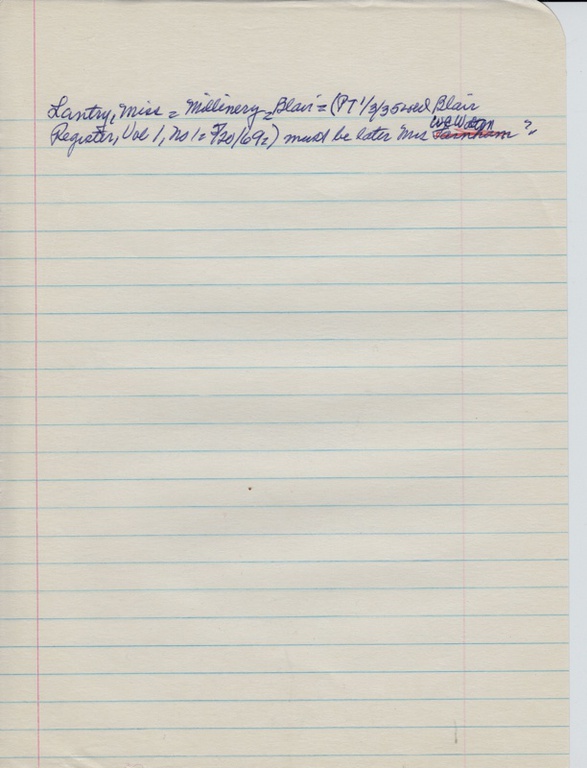 Lantry, Miss = Millinery = Blair = (PT 1/3/35 used Blair
Register, Vol 1, No 1 = /20/69=) must be later Mrs Farnham ?